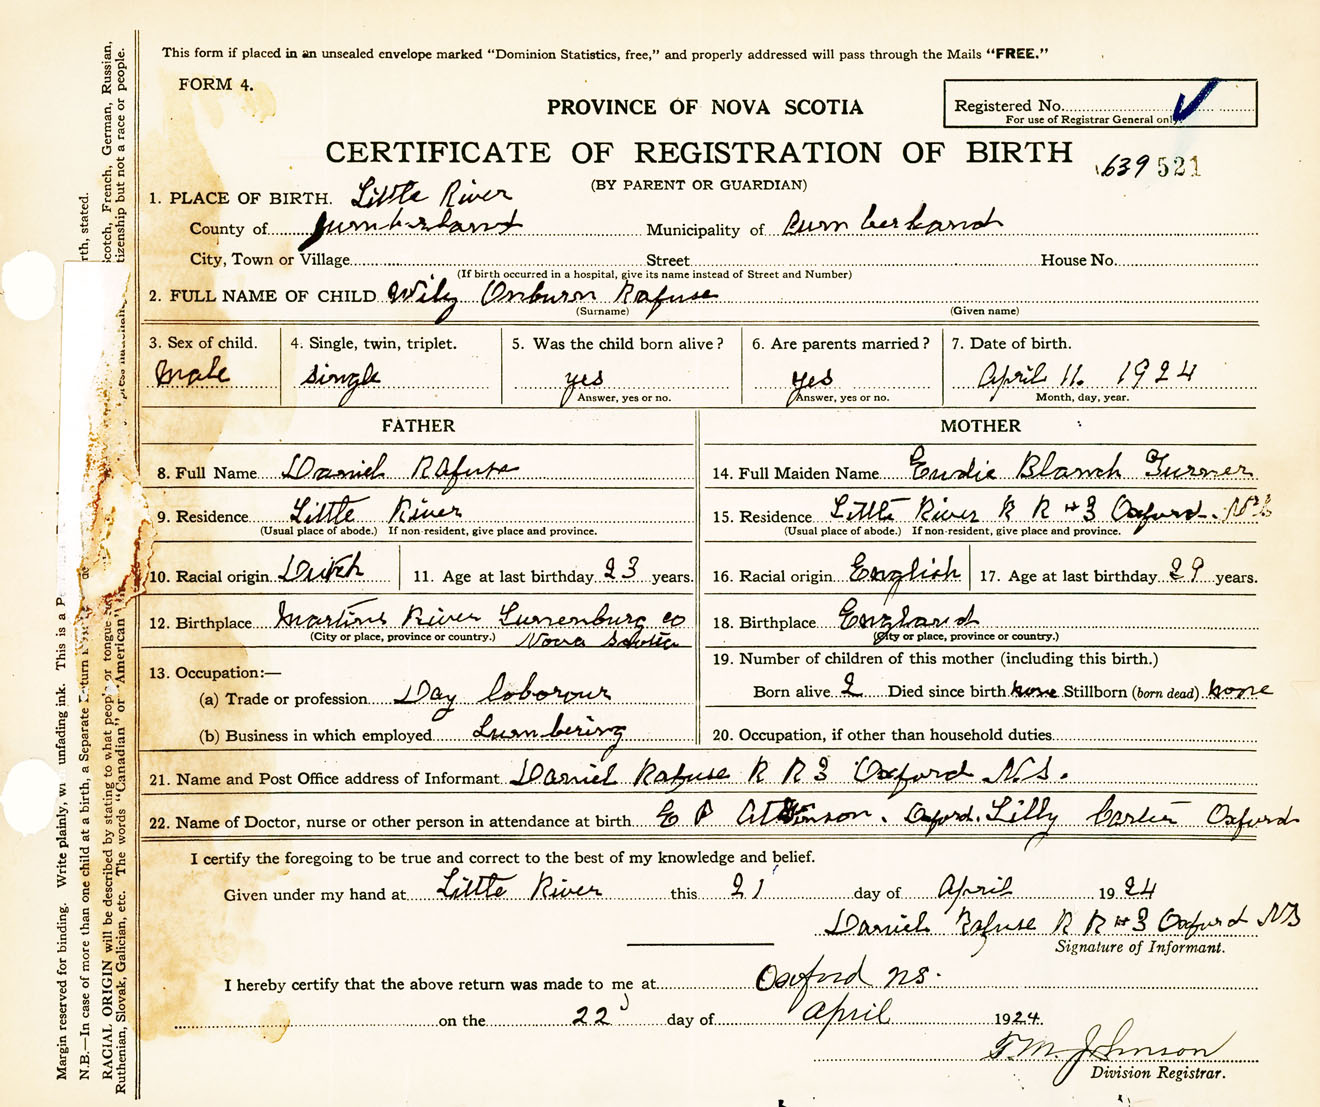 This form if placed in an unsealed envelope marked "Dominion Statistics, free," and properly addressed will pass through the Mails "FREE."
FORM 4.
PROVINCE OF NOVA SCOTIA
Registered No.
For use of Registrar General only.
CERTIFICATE OF REGISTRATION OF BIRTH
639 521
(BY PARENT OR GUARDIAN)
1. PLACE OF BIRTH. Little River
County of Cumberland Municipality of Cumberland
City, Town or Village Street House No.
(If birth occurred in a hospital, give its name instead of Street and Number)
2. FULL NAME OF CHILD Wily Onburn Rafuse
(Surname) (Given name)
3. Sex of child. 4. Single, twin, triplet. 5. Was the child born alive? 6. Are parents married? 7. Date of birth.
Male single yes yes April 11. 1924
Answer, yes or no. Answer, yes or no. Month, day, year.
FATHER MOTHER
8. Full Name Daniel Rafuse 14. Full Maiden Name Eudie Blanch Turner
9. Residence Little River 15. Residence Little River R R #3 Oxford. N.S
(Usual place of abode.) If non-resident, give place and province. (Usual place of abode.) If non-resident, give place and province.
10. Racial origin Dutch 11. Age at last birthday 23 years. 16. Racial origin English 17. Age at last birthday 29 years.
12. Birthplace Martins River Lunenburg co 18. Birthplace England
(City or place, province or country.) Nova Scotia (City or place, province or country.)
13. Occupation:— 19. Number of children of this mother (including this birth.)
(a) Trade or profession Day laborour Born alive 2 Died since birth none Stillborn (born dead) none
(b) Business in which employed Lumbering 20. Occupation, if other than household duties
21. Name and Post Office address of Informant Daniel Rafuse R R 3 Oxford N.S.
22. Name of Doctor, nurse or other person in attendance at birth E P Atkinson. Oxford. Lilly Carter Oxford
I certify the foregoing to be true and correct to the best of my knowledge and belief.
Given under my hand at Little River this 21 day of April 1924
Daniel Rafuse R R #3 Oxford NS
Signature of Informant.
I hereby certify that the above return was made to me at Oxford NS.
on the 22 day of April 1924.
T. M. Johnson
Division Registrar.
Margin reserved for binding. Write plainly, unfading ink. This is a
N.B.—In case of more than one child at a birth, a Separate Return
RACIAL ORIGIN will be described by stating to what people or tongue
Ruthenian, Slovak, Galician, etc. The words "Canadian" or "American"
rth, stated.
Scotch, French, German, Russian,
tizenship but not a race or people.